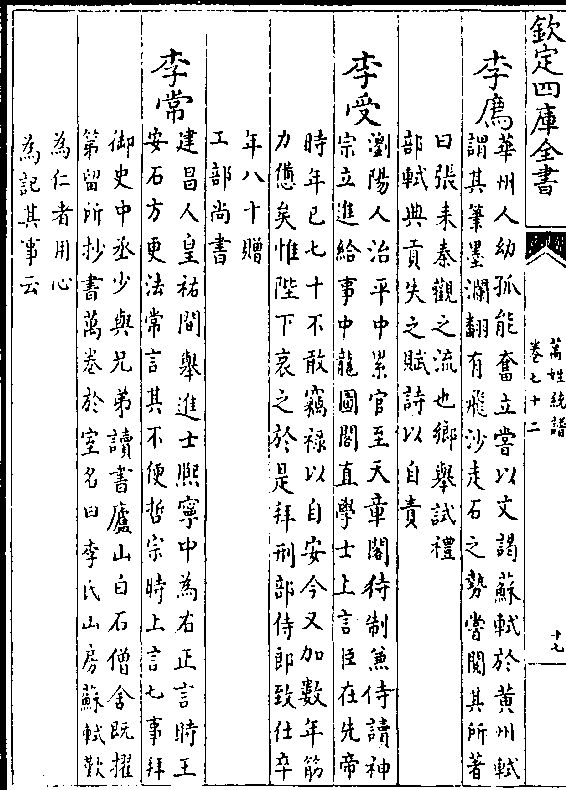 欽定四庫全書
萬姓統譜
卷七十二
十七
李廌
華州人幼孤能奮立嘗以文謁蘇軾於黄州軾
謂其筆墨瀾翻有飛沙走石之勢嘗閲其所著
曰張耒秦觀之流也鄉舉試禮
部軾典貢失之賦詩以自責
李受
瀏陽人治平中累官至天章閣待制兼侍讀神
宗立進給事中龍圖閣直學士上言臣在先帝
時年已七十不敢竊禄以自安今又加数年筋
力憊矣惟陛下哀之於是拜刑部侍郎致仕卒
年八十贈
工部尚書
李常
建昌人皇祐間舉進士熙寧中為右正言時王
安石方更法常言其不便哲宗時上言七事拜
御史中丞少與兄弟讀書廬山白石僧舍既擢
第留所抄書萬卷於室名曰李氏山房蘇軾歎
為仁者用心
為記其事云